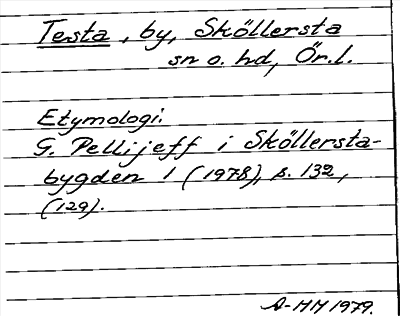 Testa, by, Sköllersta
sn o. hd, Ör.l.
Etymologi:
G. Pellijeff i Sköllersta-
bygden 1 (1978), s. 132,
(129).
A-MM 1979.